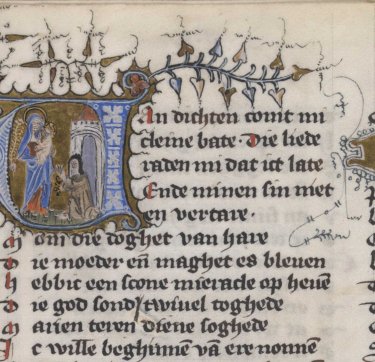 Van dichten comt mi
cleine bate. Die liede
raden mi dat ict late
Ende minen sin niet
en vertare.
M om die doghet van hare
D ie moeder eñ maghet es bleuen
H ebbic een scone mieracle op heuē
D ie god sond' twiuel toghede
M arien teren diene soghede
I c wille beghinnen vā ere nonnen